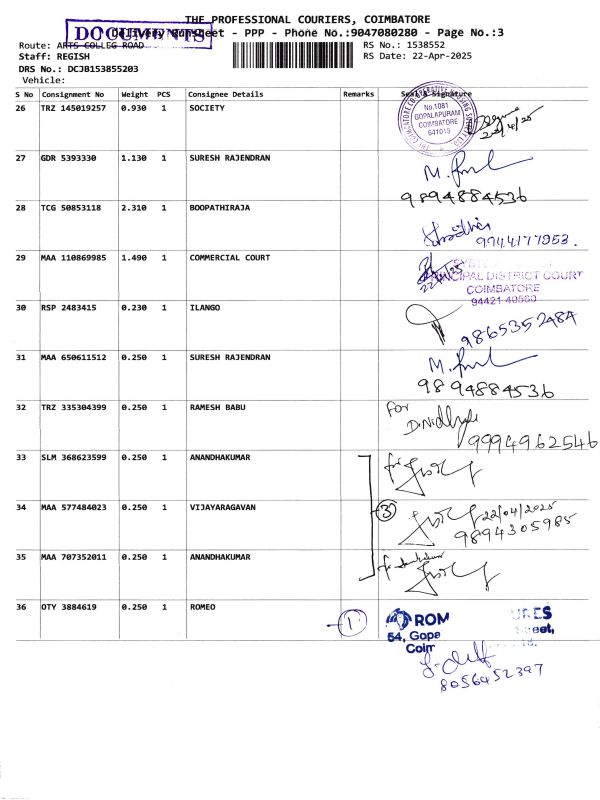 THE PROFESSIONAL COURIERS, COIMBATORE
DOCUMENTS
Delivery Runsheet - PPP - Phone No.:9047080280 - Page No.:3
Route: ARTS COLLEG ROAD RS No.: 1538552
Staff: REGISH RS Date: 22-Apr-2025
DRS No.: DCJB153855203
Vehicle:
S No Consignment No Weight PCS Consignee Details Remarks Seal & Signature
26 TRZ 145019257 0.930 1 SOCIETY
No.1081
GOPALAPURAM
COIMBATORE
641018
22/4/25
27 GDR 5393330 1.130 1 SURESH RAJENDRAN
9894884536
28 TCG 50853118 2.310 1 BOOPATHIRAJA
9944177953.
29 MAA 110869985 1.490 1 COMMERCIAL COURT
CIPAL DISTRICT COURT
COIMBATORE
94421
30 RSP 2483415 0.230 1 ILANGO
9865352484
31 MAA 650611512 0.250 1 SURESH RAJENDRAN
9894884536
32 TRZ 335304399 0.250 1 RAMESH BABU
For
9994962546
33 SLM 368623599 0.250 1 ANANDHAKUMAR
for
34 MAA 577484023 0.250 1 VIJAYARAGAVAN
3
22/04/2025
9894305985
35 MAA 707352011 0.250 1 ANANDHAKUMAR
for
36 OTY 3884619 0.250 1 ROMEO
1
ROM URES
54, Gopa Street,
Coim
8056452397